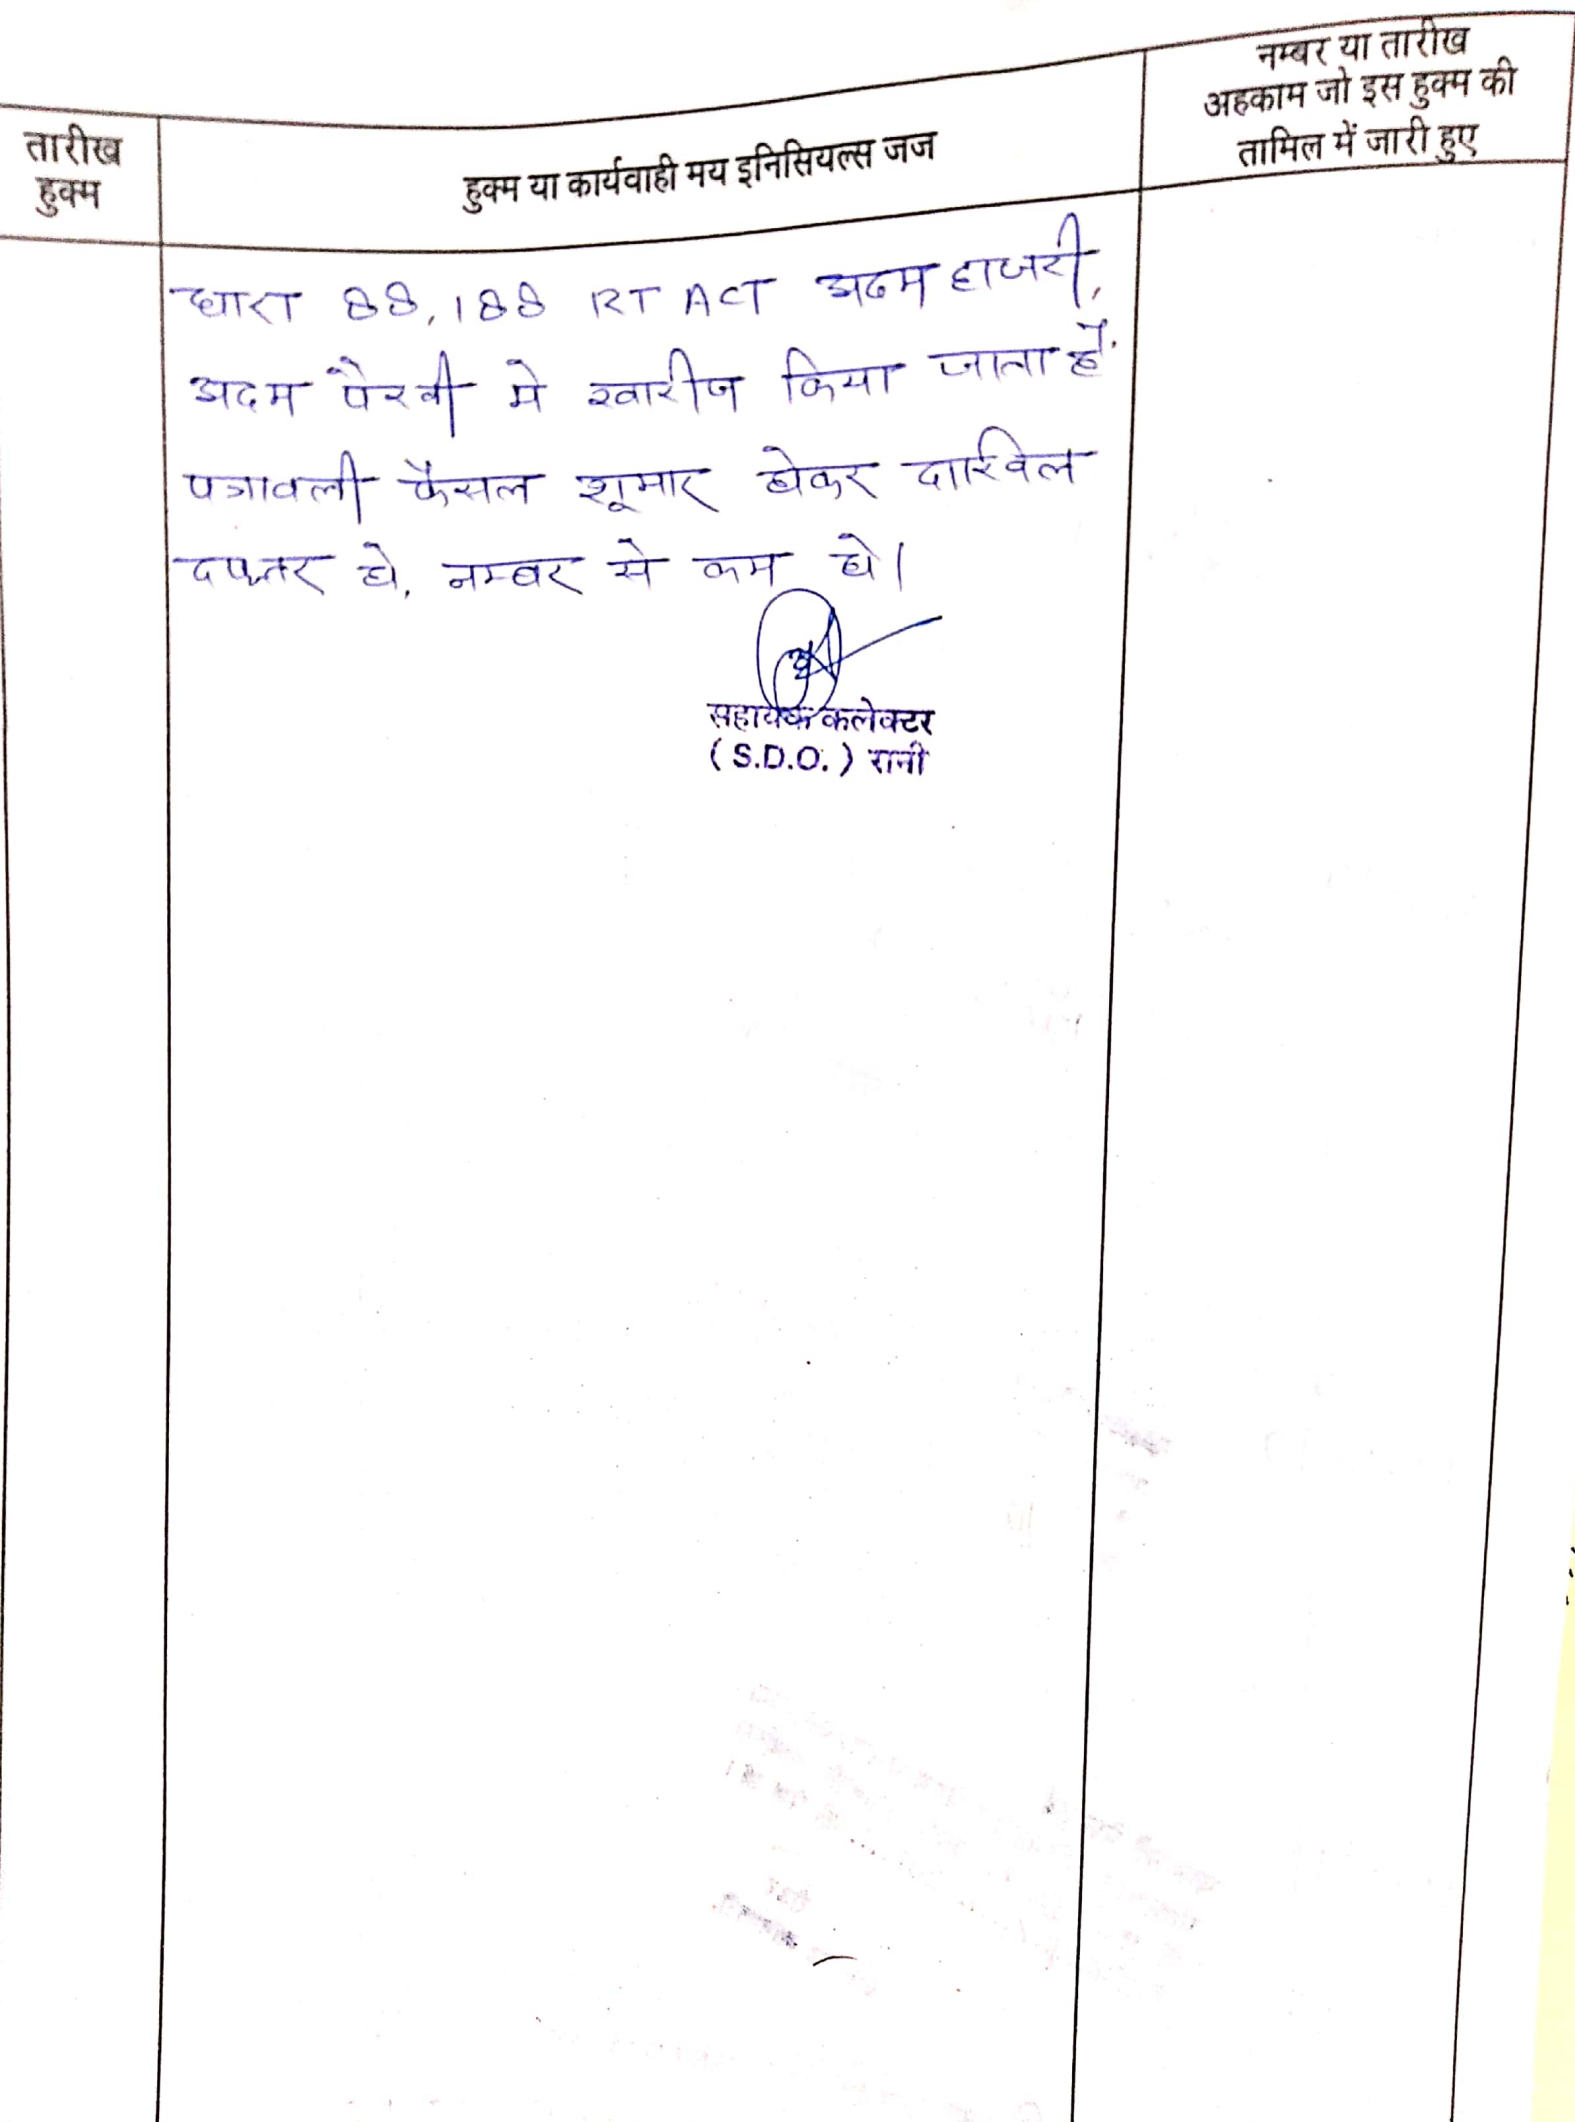 तारीख
हुक्म
हुक्म या कार्यवाही मय इनिसियल्स जज
नम्बर या तारीख
अहकाम जो इस हुक्म की
तामिल में जारी हुए
धारा 88,188 RT ACT अदम हाजरी,
अदम पैरवी मे खारीज किया जाता हैं.
पत्रावली फैसल शूमार होकर दाखिल
दफ्तर हो, नम्बर से कम हो।
सहायक कलेक्टर
(S.D.O.) रानी